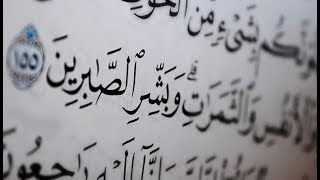 لُوَنَّكُم بِشَىْءٍ مِّنَ ٱلْخَوْفِ
وَٱلْأَنفُسِ وَٱلثَّمَرَٰتِ ۗ وَبَشِّرِ ٱلصَّٰبِرِينَ ١٥٥
وَإِنَّآ إِلَيْهِ رَٰجِعُونَ